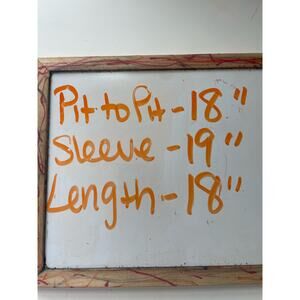 Pit to Pit - 18"
Sleeve - 19"
Length - 18"